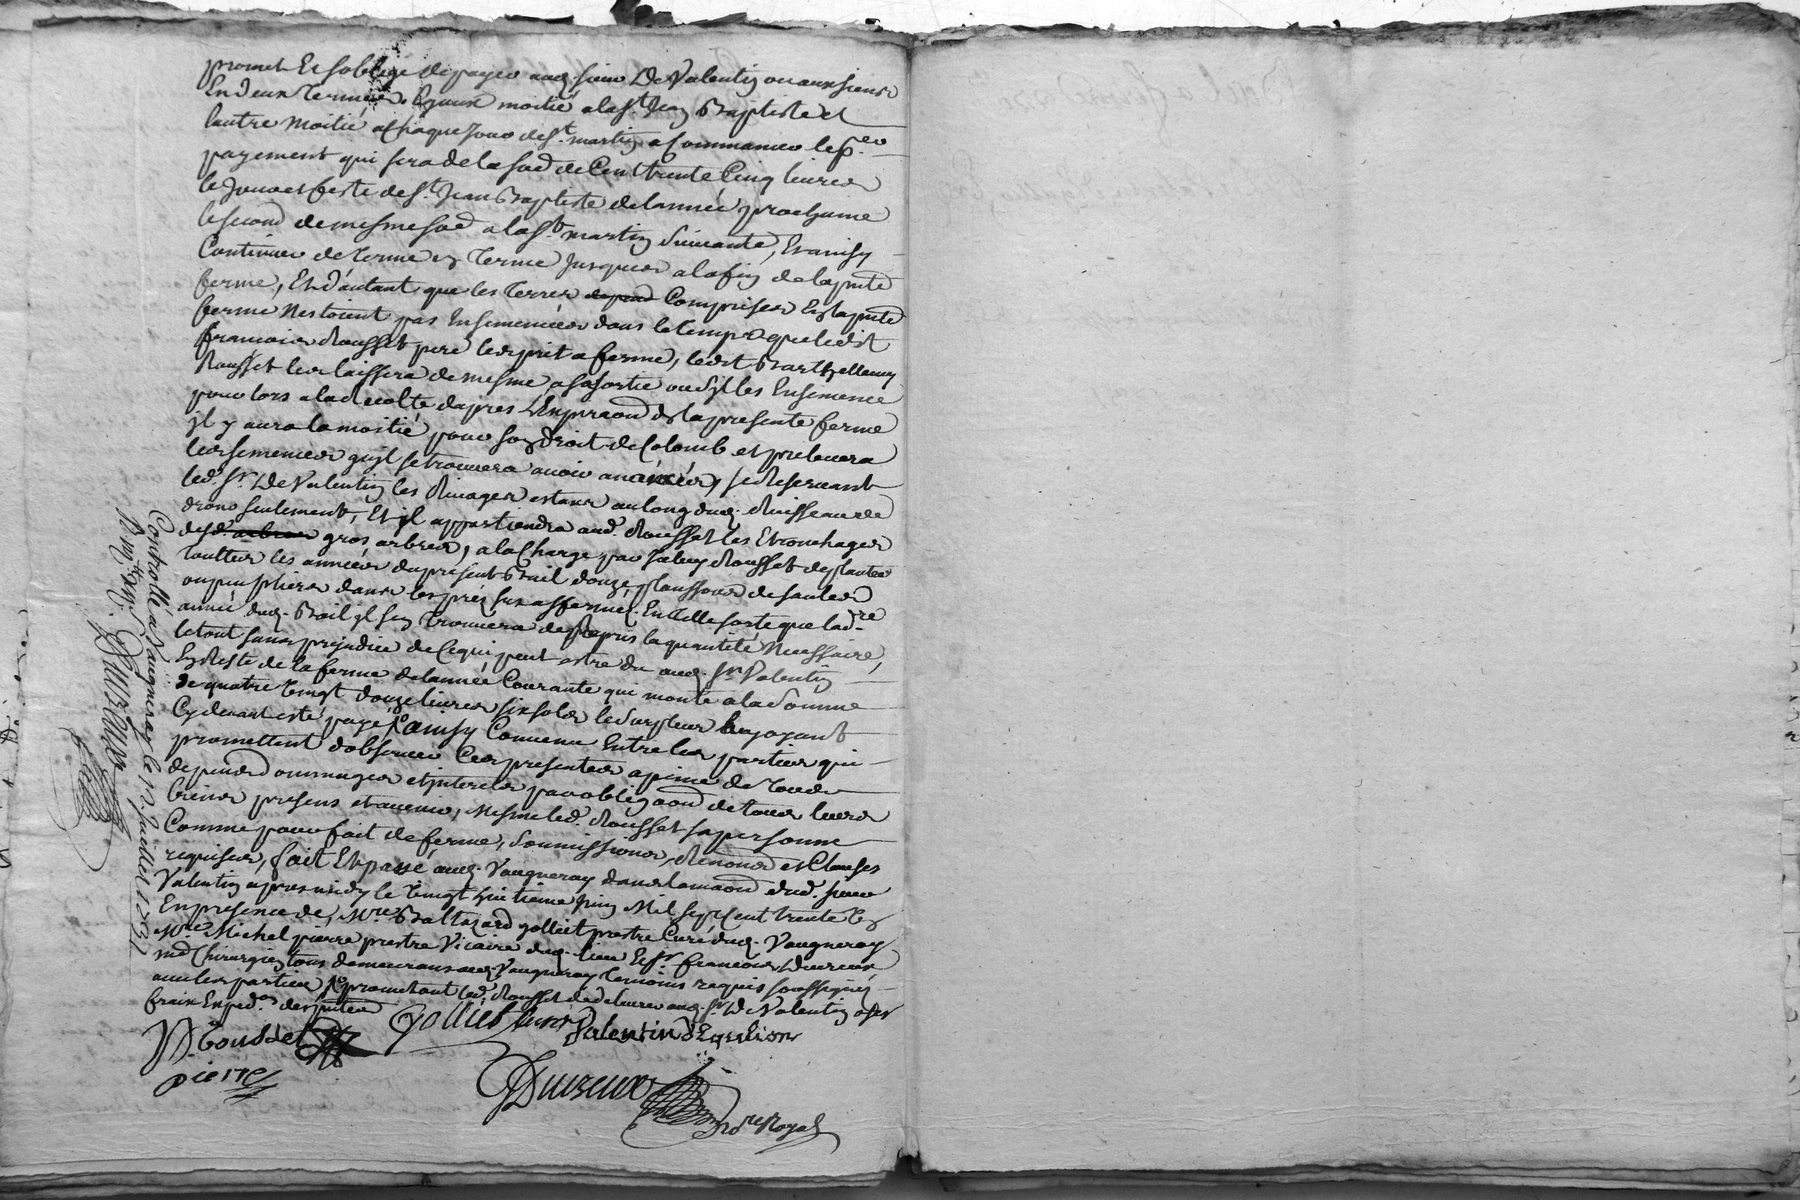 promet Et soblige de payer aud. sieur De Valentin ou aux siens
En deux termes Egaux moitié a la St Jean Baptiste et
lautre moitié a chaque jour de St. martin a Commancer le per
payement qui sera de la so͞e de Cent trente Cinq livres
le jour et feste de St. Jean Baptiste de lannée prochaine
le second de mesme so͞e a la St martin suivante, Et ainsy
Continuer de terme en terme jusques a la fin de la pnte
ferme, Et d'autant que les terres Comprises En la pnte
ferme Nestoient pas Ensemencées dans le temps que ledit
francois Rousset pere les prit a ferme, ledit Barthellemy
Rousset les laissera de mesme a sa sortie ou sil les Ensemence
pour lors a la recolte dapres l'Expiraon de la presente ferme
il y aura la moitié pour son droit de Colomb et prelevera
les semences quil se trouvera avoir avancées, se Reservant
led. Sr. De Valentin les Rivages estans au long dud. Ruisseau de
drono seulement, Et il appartiendra aud. Rousset les Etronchages
desd. gros arbres, a la Charge par Iceluy Rousset de planter
touttes les années du present Bail douze plansons de saules
ou peupliers dans les prez sus affermez En telle sorte que la dre
année dud. Bail il sen trouvera de Repris la quantité Necessaire,
le tout sans prejudice de Ce qui peut estre du aud. Sr Valentin
En Reste de la ferme de lannée Courante qui monte a la somme
de quatre vingt douze livres six sols le surplus luy ayant
Cy devant esté payé, Et ainsy Convenu Entre les parties qui
promettent dobserver Ces presentes a peine de tous
depens dommages et interests par obligaon de tous leurs
biens presens et avenir, Mesme led. Rousset sa personne
Comme pour fait de ferme, soumissions, Renonons et Clauses
requises, fait Et passé aud. Vaugneray dans la maon dud. sieur
Valentin apres midy le vingt huitieme juin Mil sept Cent trente un
En presence de Mre Baltazard golliet prestre Curé dud. Vaugneray
Mre Michel pierre prestre Vicaire dud. lieu Et Sr francois
md Chirurgien tous demeurans aud. Vaugneray temoins requis soussignez
avec les parties, Et promettant led. Rousset de delivrer aud. Sr. De Valentin a ses
frais Exped.on des pntes
B. Rousset golliet Curé Valentin D'Eguilion
pierre
Duvernay
No.re Royal
Controllé a Vaugneray le Juillet 1731